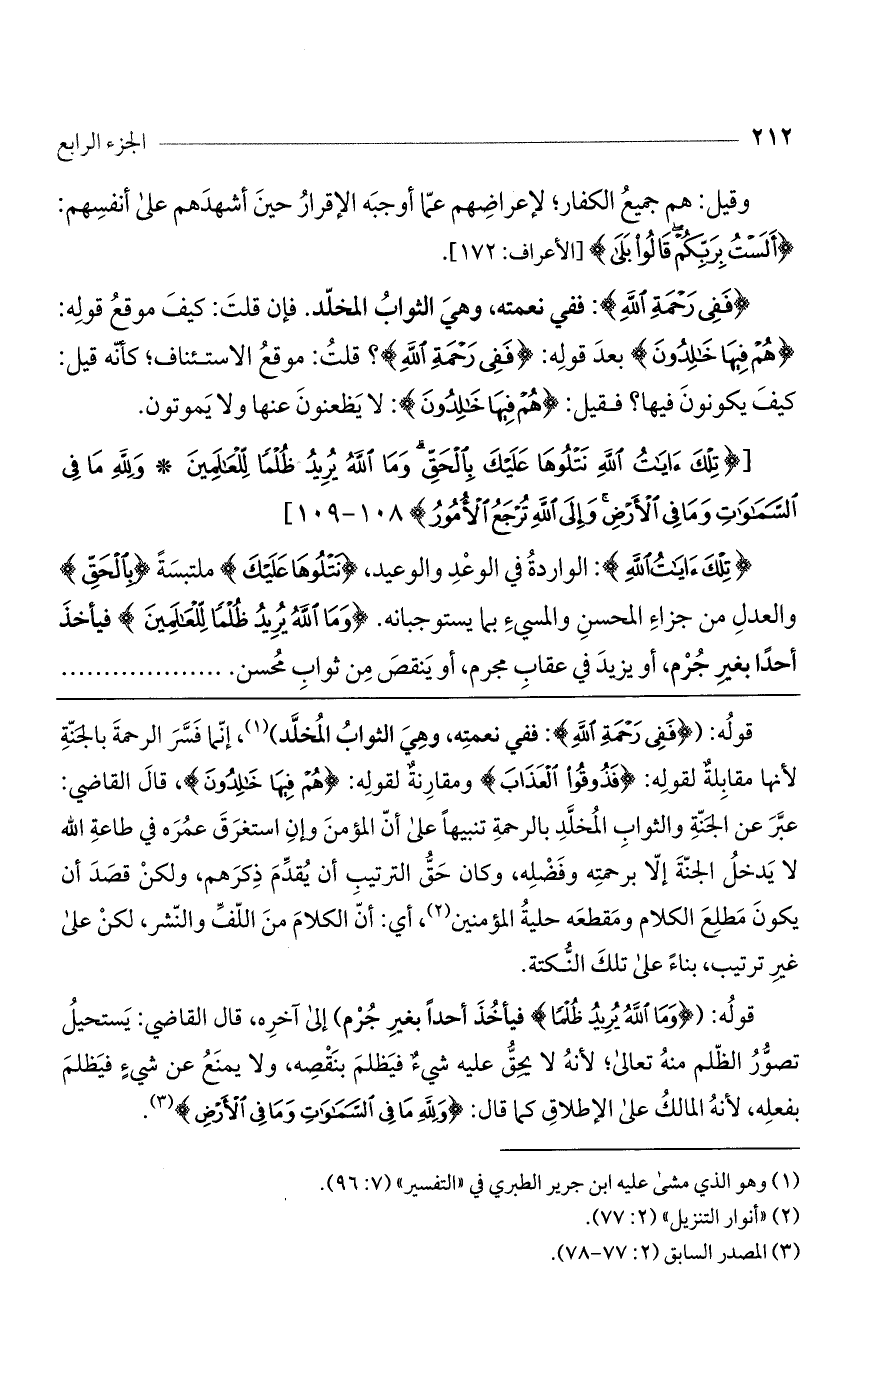 ٢١٢ الجزء الرابع
وقيل: هم جميعُ الكفار؛ لإعراضِهم عمّا أوجبَه الإقرارُ حينَ أشهدَهم علىٰ أنفسِهم:
﴿أَلَسْتُ بِرَبِّكُمْ ۖ قَالُوا۟ بَلَىٰ﴾ [الأعراف: ١٧٢].
﴿فَفِى رَحْمَةِ ٱللَّهِ﴾: ففي نعمته، وهيَ الثوابُ المخلّد. فإن قلتَ: كيفَ موقعُ قولِه:
﴿هُمْ فِيهَا خَـٰلِدُونَ﴾ بعدَ قولِه: ﴿فَفِى رَحْمَةِ ٱللَّهِ﴾؟ قلتُ: موقعُ الاستئناف؛ كأنّه قيل:
كيفَ يكونونَ فيها؟ فقيل: ﴿هُمْ فِيهَا خَـٰلِدُونَ﴾: لا يَظعنونَ عنها ولا يَموتون.
[﴿تِلْكَ ءَايَـٰتُ ٱللَّهِ نَتْلُوهَا عَلَيْكَ بِٱلْحَقِّ ۗ وَمَا ٱللَّهُ يُرِيدُ ظُلْمًا لِّلْعَـٰلَمِينَ * وَلِلَّهِ مَا فِى
ٱلسَّمَـٰوَٰتِ وَمَا فِى ٱلْأَرْضِ ۚ وَإِلَى ٱللَّهِ تُرْجَعُ ٱلْأُمُورُ﴾ ١٠٨-١٠٩]
﴿تِلْكَ ءَايَـٰتُ ٱللَّهِ﴾: الواردةُ في الوعْدِ والوعيد، ﴿نَتْلُوهَا عَلَيْكَ﴾ ملتبسَةً ﴿بِٱلْحَقِّ﴾
والعدلِ من جزاءِ المحسنِ والمسيءِ بما يستوجبانه. ﴿وَمَا ٱللَّهُ يُرِيدُ ظُلْمًا لِّلْعَـٰلَمِينَ﴾ فيأخذَ
أحدًا بغيرِ جُرْم، أو يزيدَ في عقابِ مجرم، أو يَنقصَ مِن ثوابِ مُحسن. ...................
قولُه: (﴿فَفِى رَحْمَةِ ٱللَّهِ﴾: ففي نعمتِه، وهِيَ الثوابُ المُخلَّد)(١)، إنّما فَسَّرَ الرحمةَ بالجَنّةِ
لأنها مقابِلةٌ لقولِه: ﴿فَذُوقُوا۟ ٱلْعَذَابَ﴾ ومقارِنةٌ لقولِه: ﴿هُمْ فِيهَا خَـٰلِدُونَ﴾، قالَ القاضي:
عبَّرَ عن الجَنّةِ والثوابِ المُخلَّدِ بالرحمةِ تنبيهاً علىٰ أنّ المؤمنَ وإنِ استغرَقَ عمُرَه في طاعةِ الله
لا يَدخلُ الجنّةَ إلّا برحمتِه وفَضْلِه، وكان حَقُّ الترتيبِ أن يُقدِّمَ ذِكرَهم، ولكنْ قصَدَ أن
يكونَ مَطلِعَ الكلام ومَقطعَه حليةُ المؤمنين(٢)، أي: أنّ الكلامَ منَ اللّفِّ والنّشر، لكنْ علىٰ
غيرِ ترتيب، بناءً علىٰ تلكَ النُّكتة.
قولُه: (﴿وَمَا ٱللَّهُ يُرِيدُ ظُلْمًا﴾ فيأخُذَ أحداً بغيرِ جُرْم) إلىٰ آخرِه، قال القاضي: يَستحيلُ
تصوُّرُ الظّلم منهُ تعالىٰ؛ لأنهُ لا يحِقُّ عليه شيءٌ فيَظلمَ بنَقْصِه، ولا يمنَعُ عن شيءٍ فيَظلمَ
بفعلِه، لأنهُ المالكُ علىٰ الإطلاقِ كما قال: ﴿وَلِلَّهِ مَا فِى ٱلسَّمَـٰوَٰتِ وَمَا فِى ٱلْأَرْضِ﴾(٣).
(١) وهو الذي مشىٰ عليه ابن جرير الطبري في «التفسير» (٧: ٩٦).
(٢) «أنوار التنزيل» (٢: ٧٧).
(٣) المصدر السابق (٢: ٧٧-٧٨).